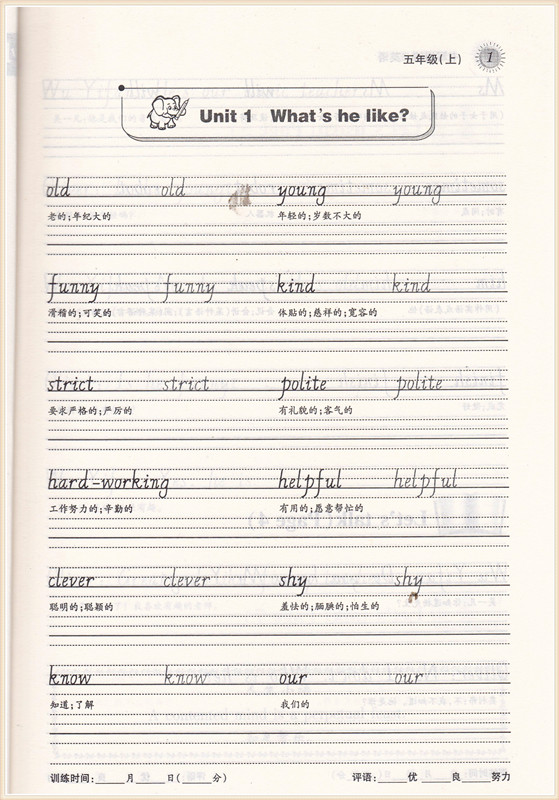 五年级(上) 1
Unit 1 What's he like?
old old young young
老的;年纪大的 年轻的;岁数不大的
funny funny kind kind
滑稽的;可笑的 体贴的;慈祥的;宽容的
strict strict polite polite
要求严格的;严厉的 有礼貌的;客气的
hard-working helpful helpful
工作努力的;辛勤的 有用的;愿意帮忙的
clever clever shy shy
聪明的;聪颖的 羞怯的;腼腆的;怕生的
know know our our
知道;了解 我们的
训练时间:____月____日(____分) 评语:____优____良____努力